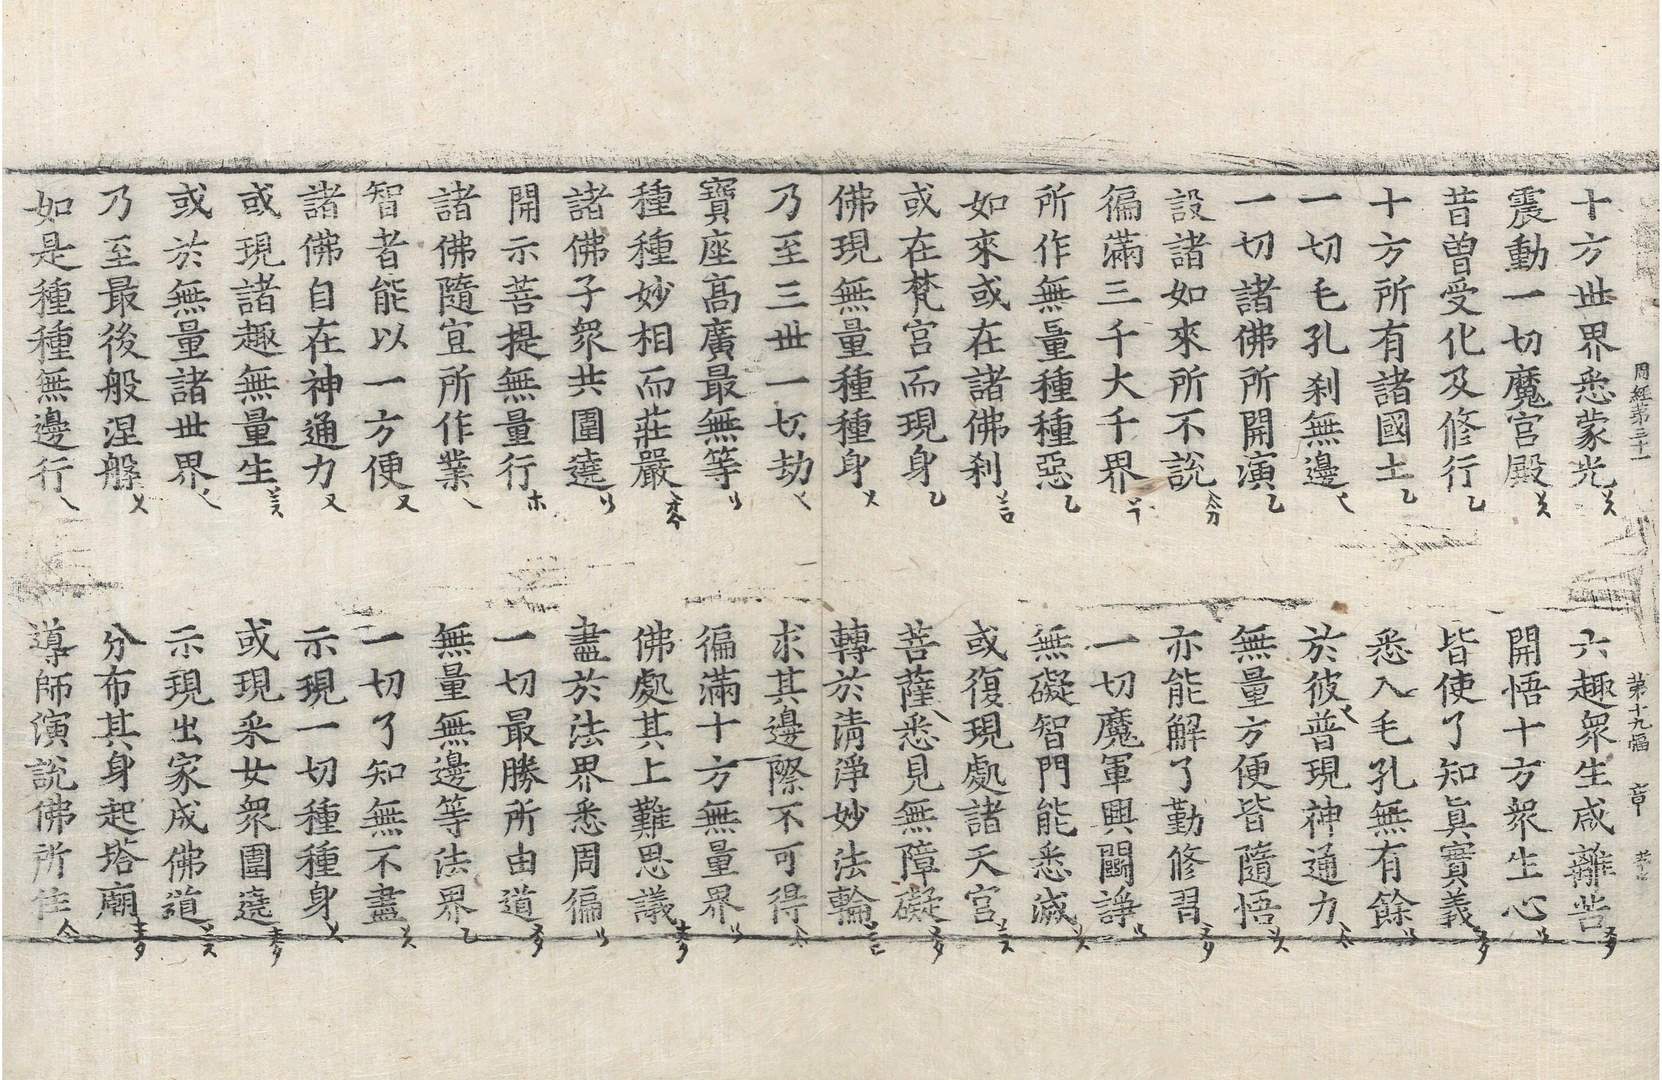 周經第三十一 第十九幅 章
十方世界悉蒙光 六趣衆生咸離苦
震動一切魔宮殿 開悟十方衆生心
昔曽受化及修行 皆使了知眞實義
十方所有諸國土 悉入毛孔無有餘
一切毛孔刹無邊 於彼普現神通力
一切諸佛所開演 無量方便皆隨悟
設諸如來所不說 亦能解了勤修習
徧滿三千大千界 一切魔軍興鬪諍
所作無量種種惡 無礙智門能悉滅
如來或在諸佛刹 或復現處諸天宮
或在梵宮而現身 菩薩悉見無障礙
佛現無量種種身 轉於淸淨妙法輪
乃至三世一切劫 求其邊際不可得
寶座高廣最無等 徧滿十方無量界
種種妙相而莊嚴 佛處其上難思議
諸佛子衆共圍遶 盡於法界悉周徧
開示菩提無量行 一切最勝所由道
諸佛隨宜所作業 無量無邊等法界
智者能以一方便 一切了知無不盡
諸佛自在神通力 示現一切種種身
或現諸趣無量生 或現采女衆圍遶
或於無量諸世界 示現出家成佛道
乃至最後般涅槃 分布其身起塔廟
如是種種無邊行 導師演說佛所住